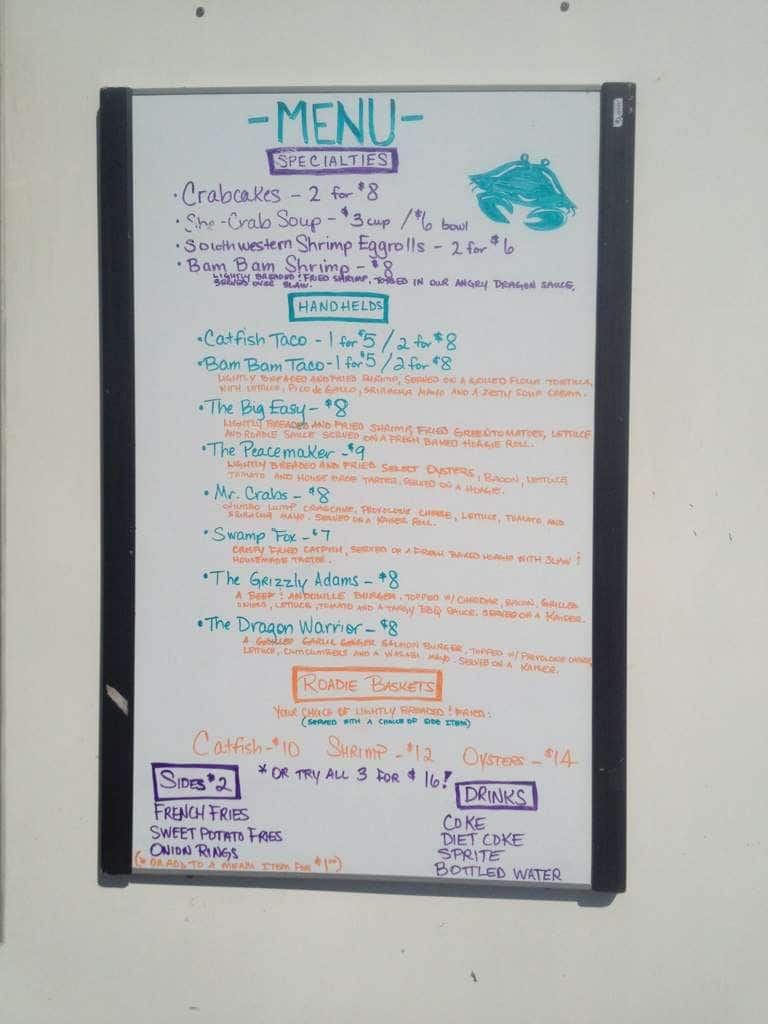 -MENU-
SPECIALTIES
• Crabcakes - 2 for $8
• She-Crab Soup - $3 cup / $6 bowl
• Southwestern Shrimp Eggrolls - 2 for $6
• Bam Bam Shrimp - $8
LIGHTLY BREADED & FRIED SHRIMP, TOSSED IN OUR ANGRY DRAGON SAUCE,
SERVED OVER SLAW.
HANDHELDS
• Catfish Taco - 1 for $5 / 2 for $8
• Bam Bam Taco - 1 for $5 / 2 for $8
LIGHTLY BREADED AND FRIED SHRIMP, SERVED ON A GRILLED FLOUR TORTILLA,
WITH LETTUCE, PICO de GALLO, SRIRACHA MAYO AND A ZESTY SOUR CREAM.
• The Big Easy - $8
LIGHTLY BREADED AND FRIED SHRIMP, FRIED GREEN TOMATOES, LETTUCE
AND ROADIE SAUCE SERVED ON A FRESH BAKED HOAGIE ROLL.
• The Peacemaker - $9
LIGHTLY BREADED AND FRIED SELECT OYSTERS, BACON, LETTUCE
TOMATO AND HOUSE MADE TARTER. SERVED ON A HOAGIE.
• Mr. Crabs - $8
JUMBO LUMP CRABCAKE, PROVOLONE CHEESE, LETTUCE, TOMATO AND
SRIRACHA MAYO. SERVED ON A KAISER ROLL.
• Swamp Fox - $7
CRISPY FRIED CATFISH, SERVED ON A FRESH BAKED HOAGIE WITH SLAW &
HOUSEMADE TARTER.
• The Grizzly Adams - $8
A BEEF & ANDOUILLE BURGER, TOPPED W/ CHEDDAR, BACON, GRILLED
ONIONS, LETTUCE, TOMATO AND A TANGY BBQ SAUCE. SERVED ON A KAISER.
• The Dragon Warrior - $8
A GRILLED GARLIC GINGER SALMON BURGER, TOPPED W/ PROVOLONE CHEESE,
LETTUCE, CUMCUMBERS AND A WASABI MAYO. SERVED ON A KAISER.
ROADIE BASKETS
YOUR CHOICE OF LIGHTLY BREADED & FRIED:
(SERVED WITH A CHOICE OF SIDE ITEM)
Catfish - $10 SHRIMP - $12 OYSTERS - $14
* OR TRY ALL 3 FOR $16!
SIDES $2
FRENCH FRIES
SWEET POTATO FRIES
ONION RINGS
(* OR ADD TO A MENU ITEM FOR $1.00)
DRINKS
COKE
DIET COKE
SPRITE
BOTTLED WATER